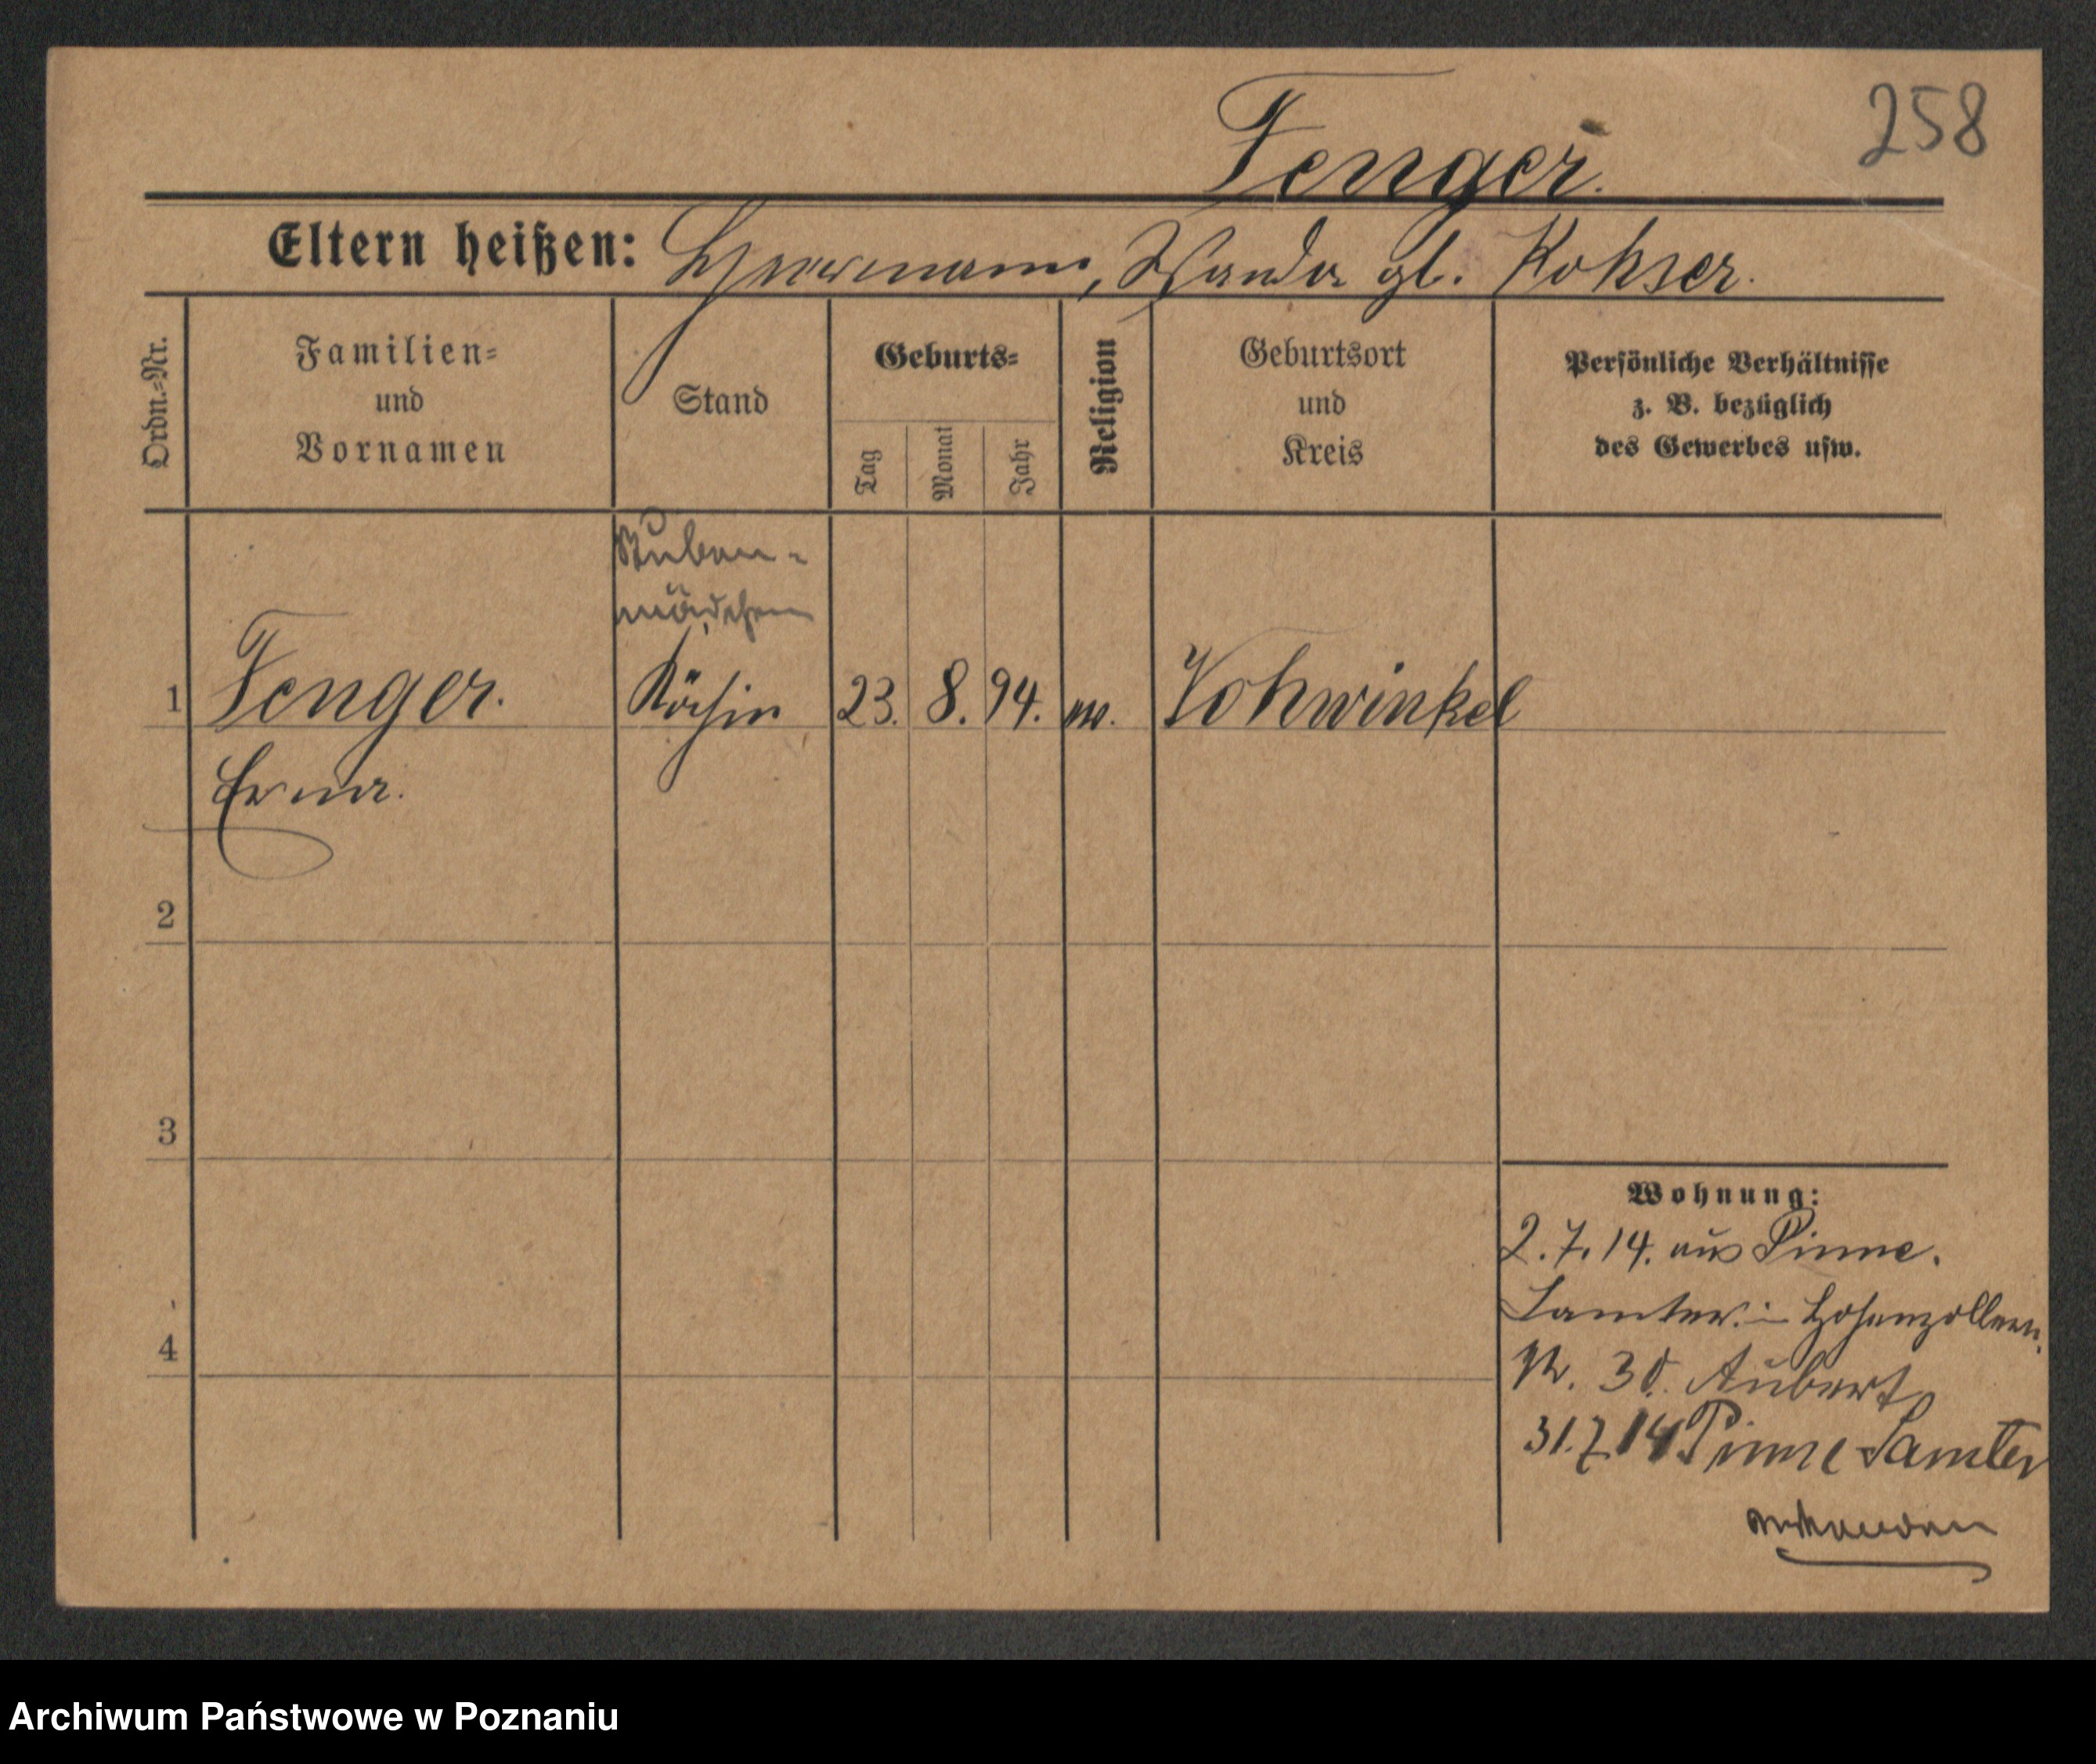 258
Fenger.
Eltern heißen: Herrmann, Wanda gb. Kohser.
Ordn.-Nr.
Familien- und Vornamen
Stand
Geburts-
Tag
Monat
Jahr
Religion
Geburtsort und Kreis
Persönliche Verhältnisse
z. B. bezüglich
des Gewerbes usw.
Stuben-
mädchen
1 Fenger. Köchin 23. 8. 94. ev. Vohwinkel
Erna.
2
3
4
Wohnung:
2.7.14. aus Pinne.
Samter. Hohenzollern
Nr. 30. Aubert
31.7.14 Pinne Samter
Archiwum Państwowe w Poznaniu